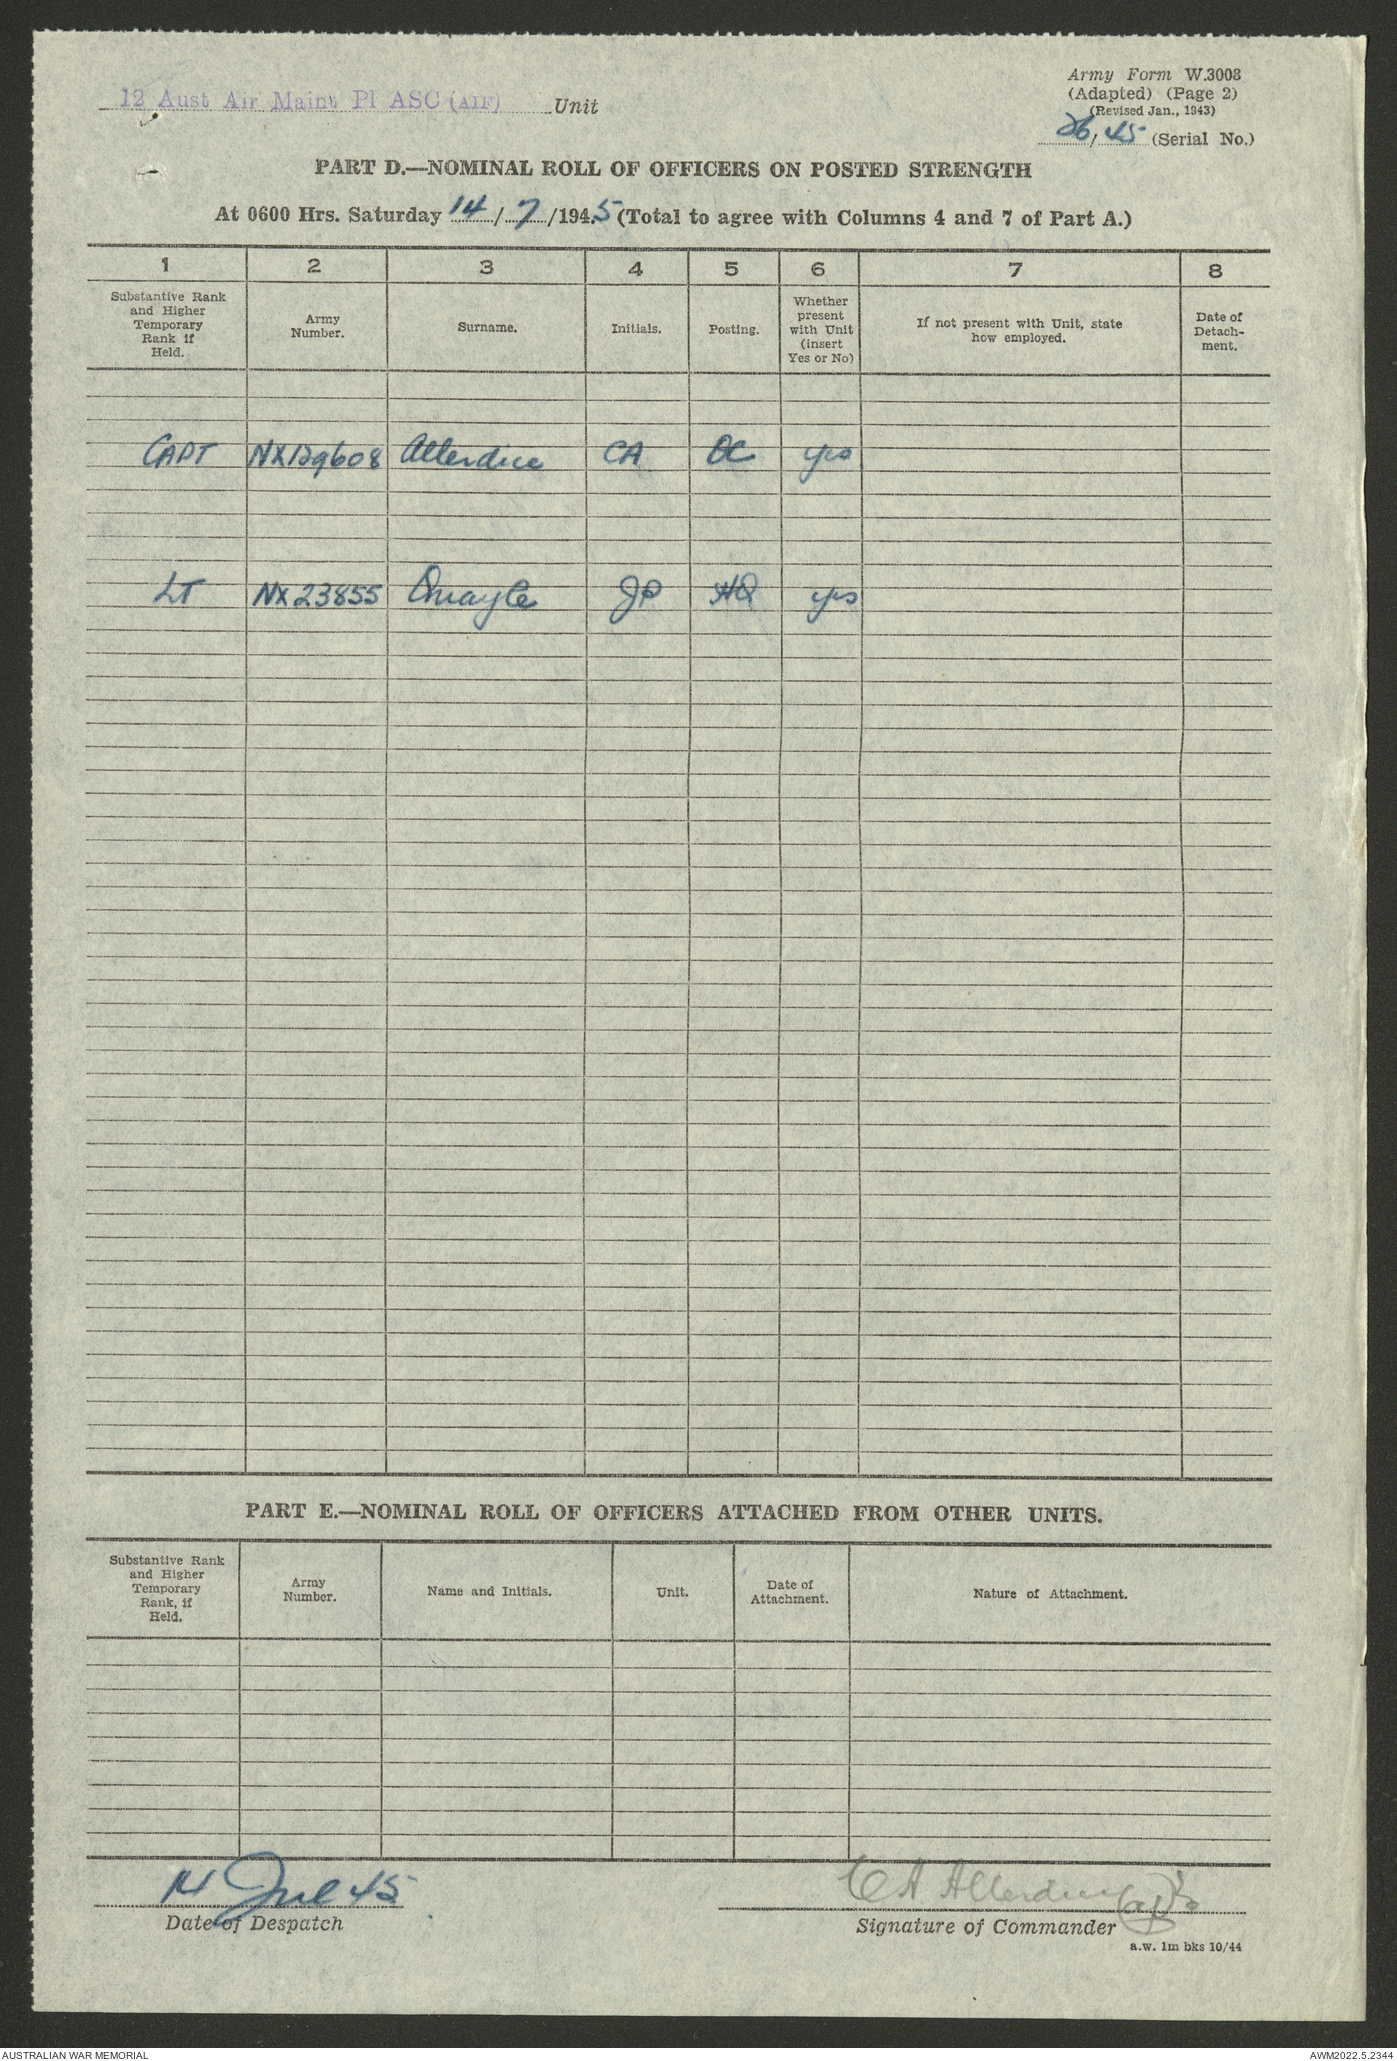 12 Aust Air Maint Pl ASC (AIF) Unit
Army Form W.3008
(Adapted) (Page 2)
(Revised Jan., 1943)
26/45 (Serial No.)
PART D.—NOMINAL ROLL OF OFFICERS ON POSTED STRENGTH
At 0600 Hrs. Saturday 14/7/1945 (Total to agree with Columns 4 and 7 of Part A.)
1 2 3 4 5 6 7 8
Substantive Rank and Higher Temporary Rank if Held.
Army Number.
Surname.
Initials.
Posting.
Whether present with Unit (insert Yes or No)
If not present with Unit, state how employed.
Date of Detach-ment.
CAPT NX129608 Allerdice CA OC yes
LT NX23855 Quayle JP HQ yes
PART E.—NOMINAL ROLL OF OFFICERS ATTACHED FROM OTHER UNITS.
Substantive Rank and Higher Temporary Rank, if Held.
Army Number.
Name and Initials.
Unit.
Date of Attachment.
Nature of Attachment.
14 Jul 45
Date of Despatch
CA Allerdice Capt
Signature of Commander
a.w. 1m bks 10/44
AUSTRALIAN WAR MEMORIAL
AWM2022.5.2344